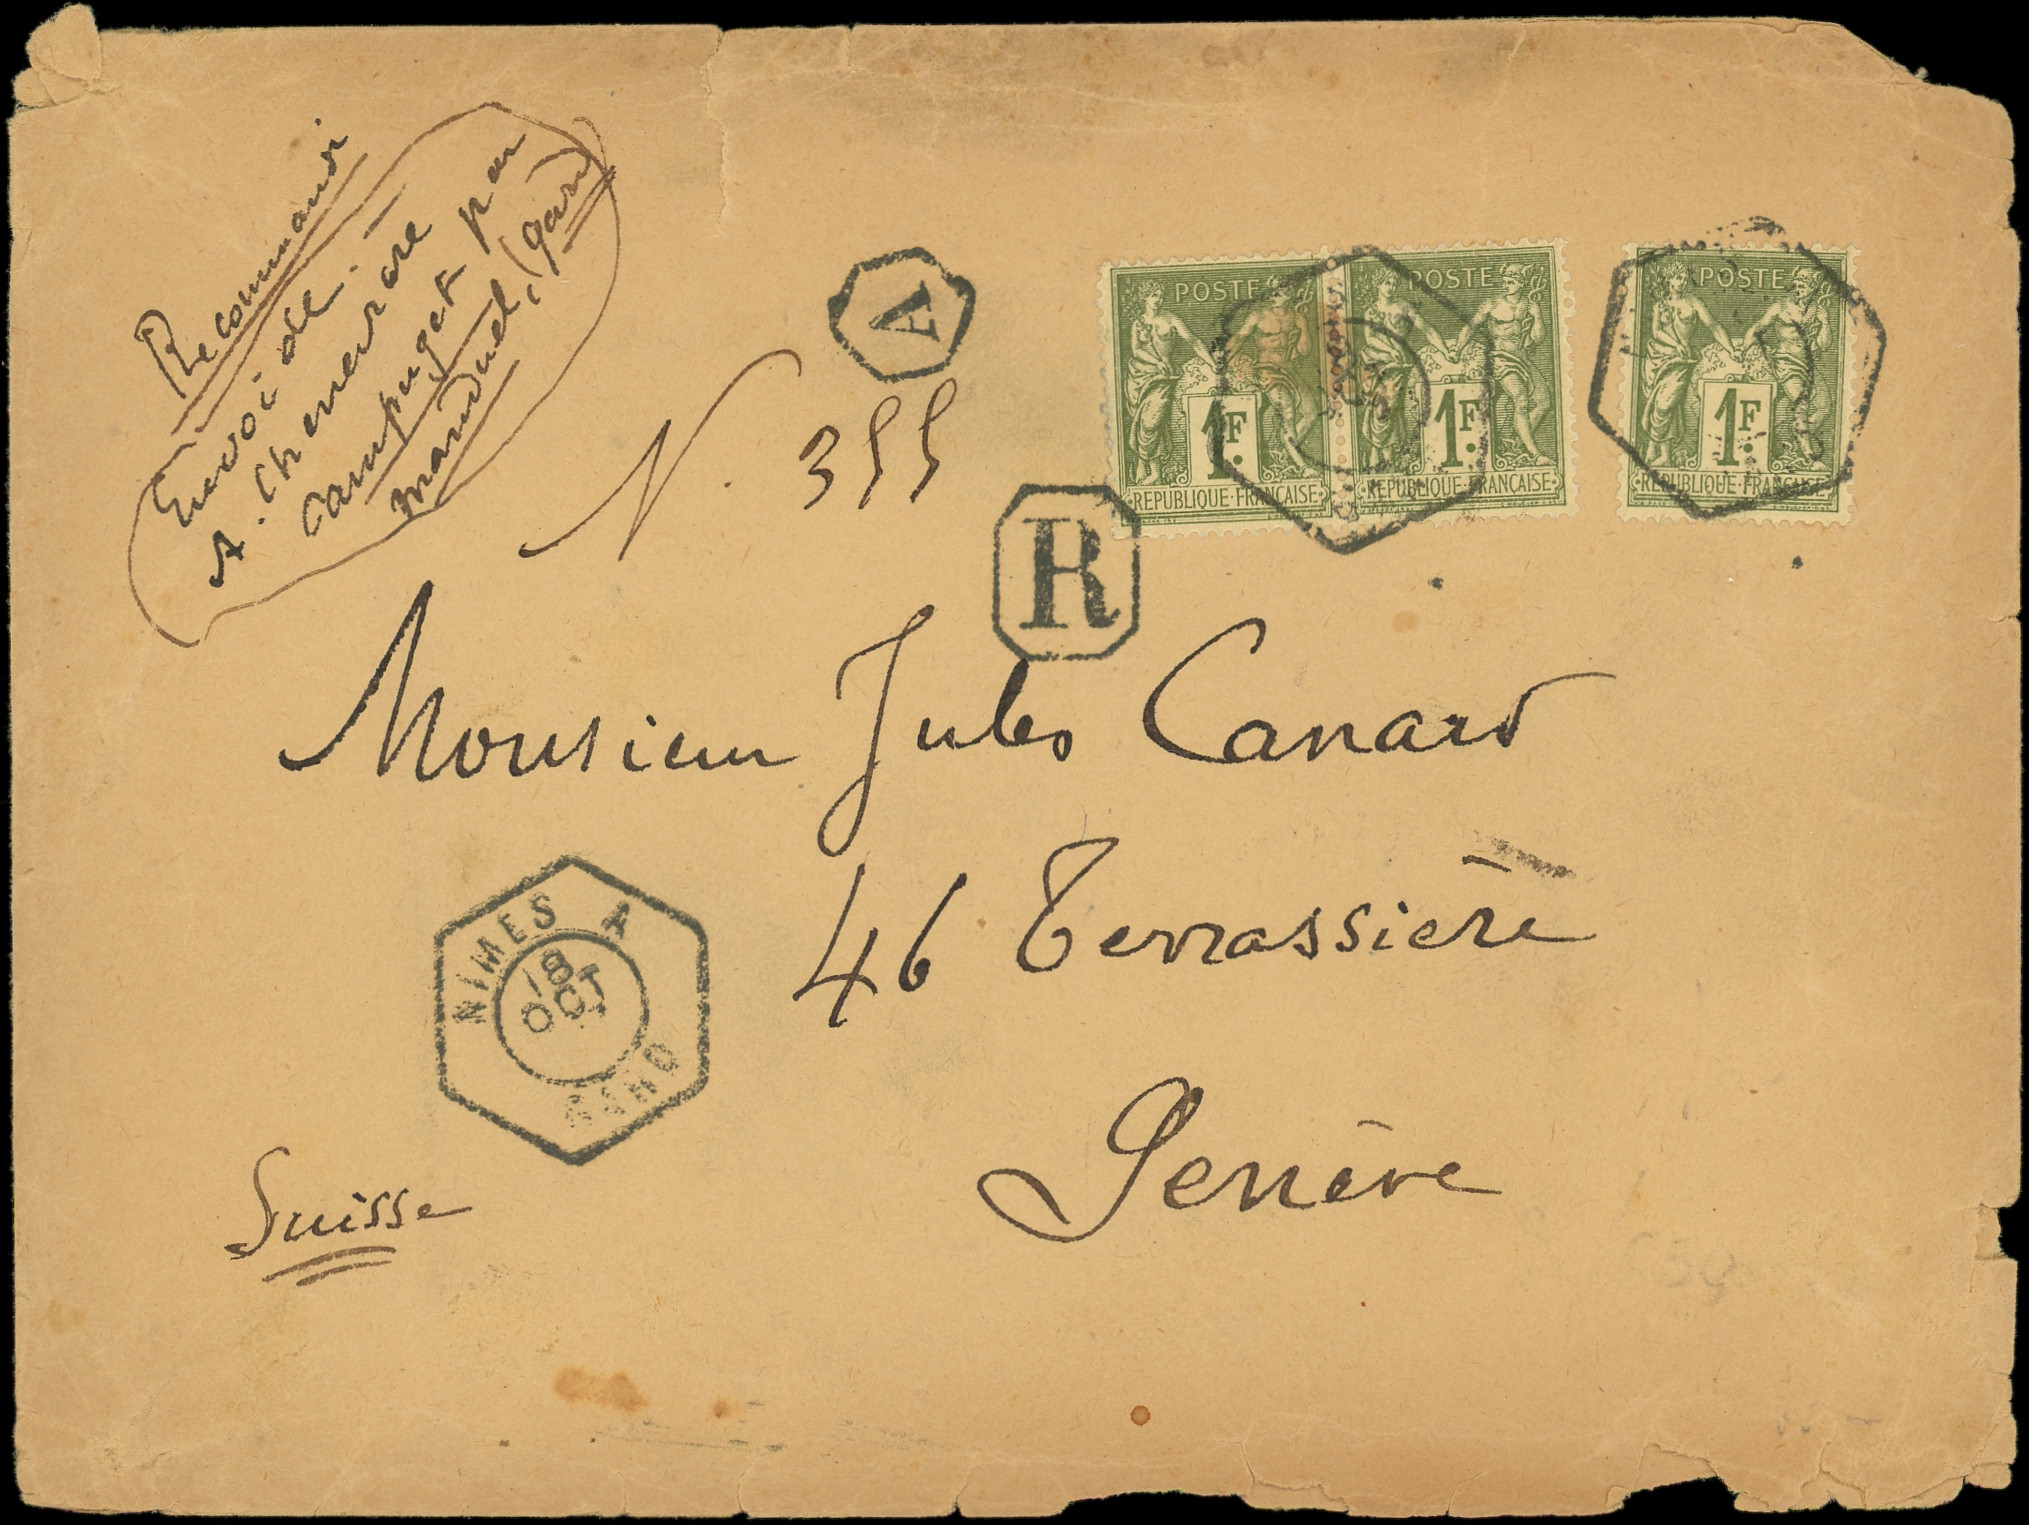 Recommandé
Envoi de
A. Chenevière
Campuget par
Manduel, (Gard)
A
N. 355
R
POSTE
1F.
REPUBLIQUE FRANÇAISE
POSTE
1F.
REPUBLIQUE FRANÇAISE
POSTE
1F.
REPUBLIQUE FRANÇAISE
Monsieur Jules Canard
46 Terrassière
Genève
NIMES A
18
OCT
GARD
Suisse